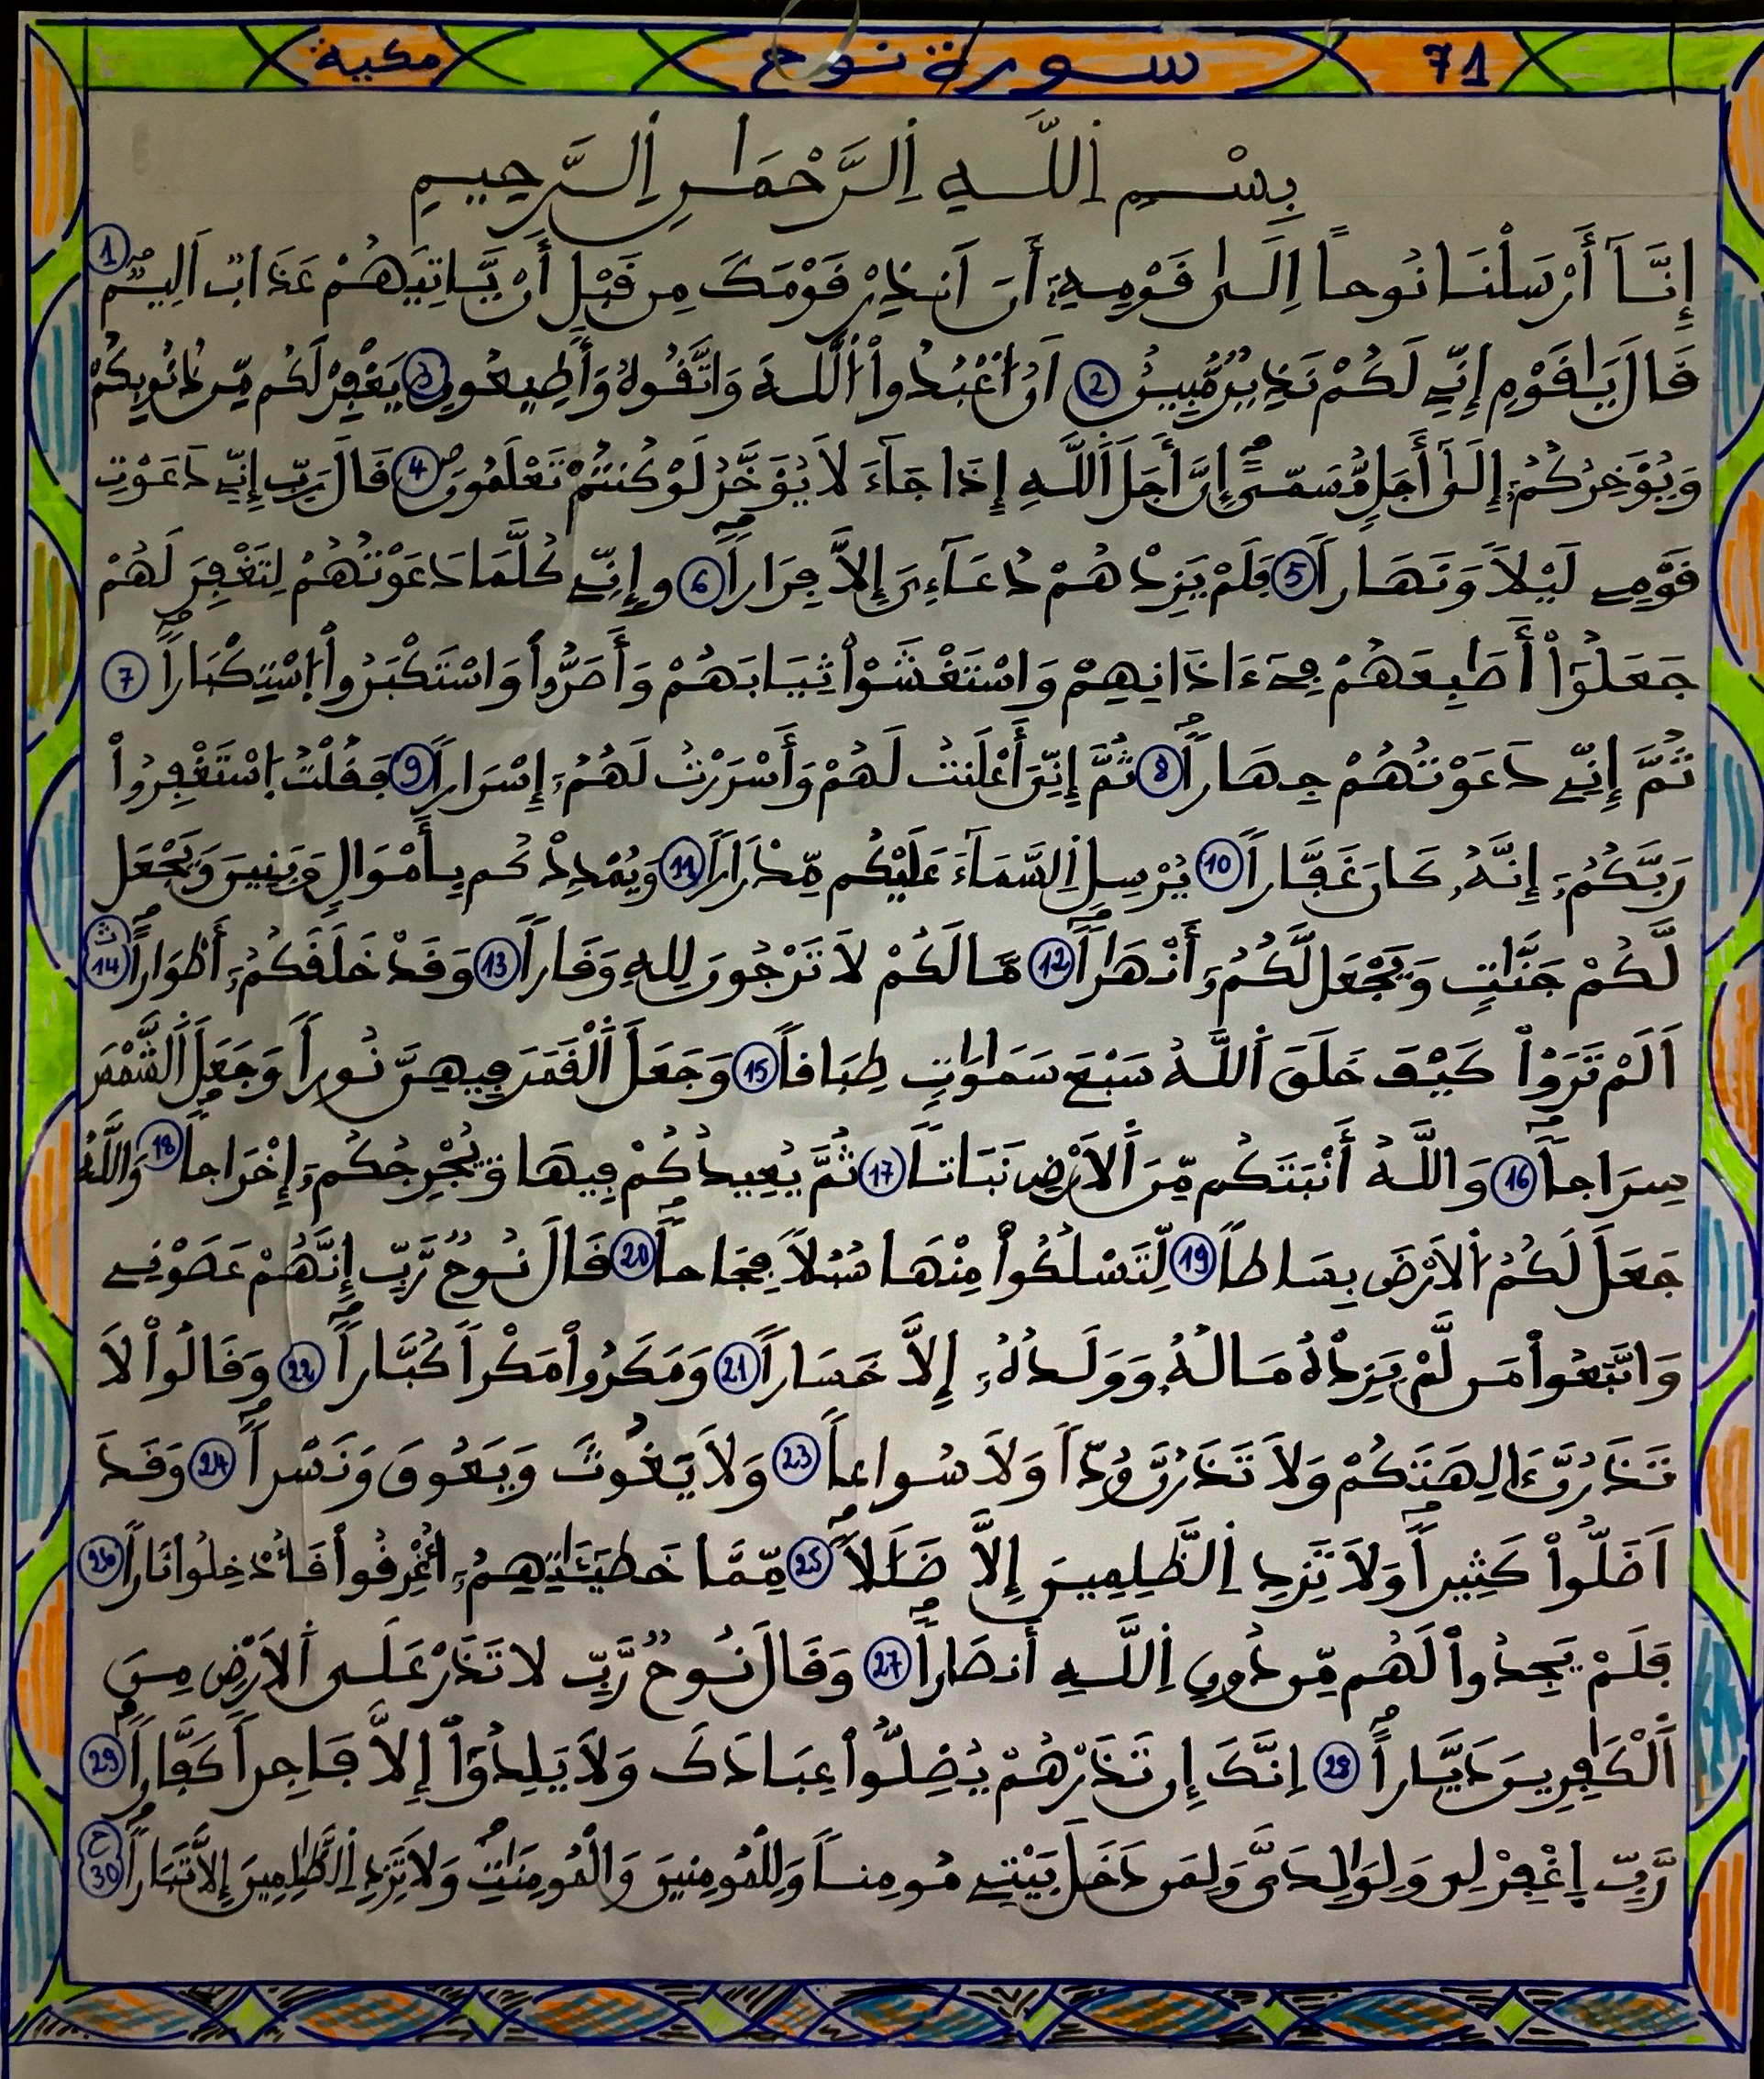 71 سورة نوح مكية
بِسْمِ اِللَّهِ اِلرَّحْمَٰنِ اِلرَّحِيمِ
إِنَّآ أَرْسَلْنَا نُوحاً اِلَىٰ قَوْمِهِۦٓ أَنَ اَنذِرْ قَوْمَكَ مِن قَبْلِ أَنْ يَّاتِيَهُمْ عَذَابٌ اَلِيمٌ 1
قَالَ يَٰقَوْمِ إِنِّے لَكُمْ نَذِيرٌ مُّبِينٌ 2 اَنُ اُعْبُدُواْ اُللَّهَ وَاتَّقُوهُ وَأَطِيعُونِ 3 يَغْفِرْ لَكُم مِّن ذُنُوبِكُمْ
وَيُوَخِّرْكُمُۥٓ إِلَىٰٓ أَجَلٍ مُّسَمّىًۖ إِنَّ أَجَلَ اَللَّهِ إِذَا جَآءَ لَا يُوَخَّرُ لَوْ كُنتُمْ تَعْلَمُونَۖ 4 قَالَ رَبِّ إِنِّے دَعَوْتُ
قَوْمِے لَيْلاً وَنَهَاراً 5 فَلَمْ يَزِدْهُمْ دُعَآءِيَ إِلاَّ فِرَاراًۖ 6 وإِنِّے كُلَّمَا دَعَوْتُهُمْ لِتَغْفِرَ لَهُمْ
جَعَلُوٓاْ أَصَٰبِعَهُمْ فِےٓ ءَاذَانِهِمْ وَاسْتَغْشَوْاْ ثِيَابَهُمْ وَأَصَرُّواْ وَاسْتَكْبَرُواْ اُسْتِكْبَاراًۖ 7
ثُمَّ إِنِّے دَعَوْتُهُمْ جِهَاراًۖ 8 ثُمَّ إِنِّيَ أَعْلَنتُ لَهُمْ وَأَسْرَرْتُ لَهُمُۥٓ إِسْرَاراً 9 فَقُلْتُ اُسْتَغْفِرُواْ
رَبَّكُمُۥٓ إِنَّهُۥ كَانَ غَفَّاراً 10 يُرْسِلِ اِلسَّمَآءَ عَلَيْكُم مِّدْرَاراً 11 وَيُمْدِدْكُم بِأَمْوَالٍ وَبَنِينَ وَيَجْعَل
لَّكُمْ جَنَّٰتٍ وَيَجْعَل لَّكُمُۥٓ أَنْهَٰراًۖ 12 مَّا لَكُمْ لَا تَرْجُونَ لِلهِ وَقَاراً 13 وَقَدْ خَلَقَكُمُۥٓ أَطْوَاراًۖ 14
اَلَمْ تَرَوْاْ كَيْفَ خَلَقَ اَللَّهُ سَبْعَ سَمَٰوَٰتٍ طِبَاقاً 15 وَجَعَلَ اَلْقَمَرَ فِيهِنَّ نُوراً وَجَعَلَ اَلشَّمْسَ
سِرَاجاًۖ 16 وَاللَّهُ أَنْبَتَكُم مِّنَ اَلَارْضِ نَبَاتاً 17 ثُمَّ يُعِيدُكُمْ فِيهَا وَيُخْرِجُكُمُۥٓ إِخْرَاجاًۖ 18 وَاللَّهُ
جَعَلَ لَكُمُ اُلَارْضَ بِسَاطاً 19 لِّتَسْلُكُواْ مِنْهَا سُبُلاً فِجَاجاًۖ 20 قَالَ نُوحٌ رَّبِّ إِنَّهُمْ عَصَوْنِے
وَاتَّبَعُواْ مَن لَّمْ يَزِدْهُ مَالُهُۥ وَوَلَدُهُۥٓ إِلاَّ خَسَاراً 21 وَمَكَرُواْ مَكْراً كُبَّاراًۖ 22 وَقَالُواْ لَا
تَذَرُنَّ ءَالِهَتَكُمْ وَلَا تَذَرُنَّ وُدّاً وَلَا سُوَاعاً 23 وَلَا يَغُوثَ وَيَعُوقَ وَنَسْراًۖ 24 وَقَدَ
اَضَلُّواْ كَثِيراًۖ وَلَا تَزِدِ اِلظَّٰلِمِينَ إِلاَّ ضَلَٰلاًۖ 25 مِّمَّا خَطِيٓـَٰٔتِهِمُۥٓ أُغْرِقُواْ فَأُدْخِلُواْ نَاراً 26
فَلَمْ يَجِدُواْ لَهُم مِّن دُونِ اِللَّهِ أَنصَاراًۖ 27 وَقَالَ نُوحٌ رَّبِّ لَا تَذَرْ عَلَى اَلَارْضِ مِنَ
اَلْكَٰفِرِينَ دَيَّاراًۖ 28 اِنَّكَ إِن تَذَرْهُمْ يُضِلُّواْ عِبَادَكَ وَلَا يَلِدُوٓاْ إِلاَّ فَاجِراً كَفَّاراًۖ 29
رَّبِّ اِغْفِرْ لِے وَلِوَٰلِدَيَّ وَلِمَن دَخَلَ بَيْتِے مُومِناً وَلِلْمُومِنِينَ وَالْمُومِنَٰتِۖ وَلَا تَزِدِ اِلظَّٰلِمِينَ إِلاَّ تَبَاراًۖ 30